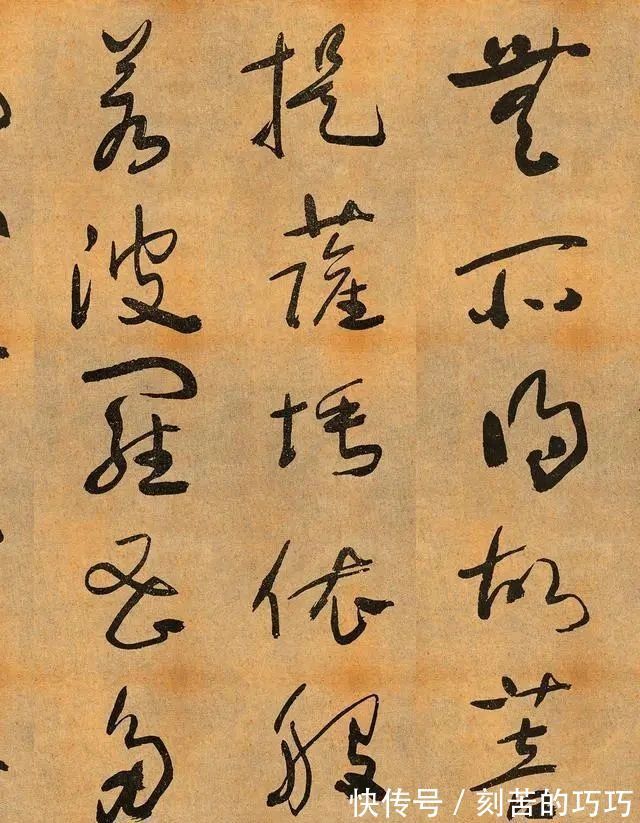 無所得故菩
提薩埵依般
若波羅蜜多
快传号 / 刻苦的巧巧